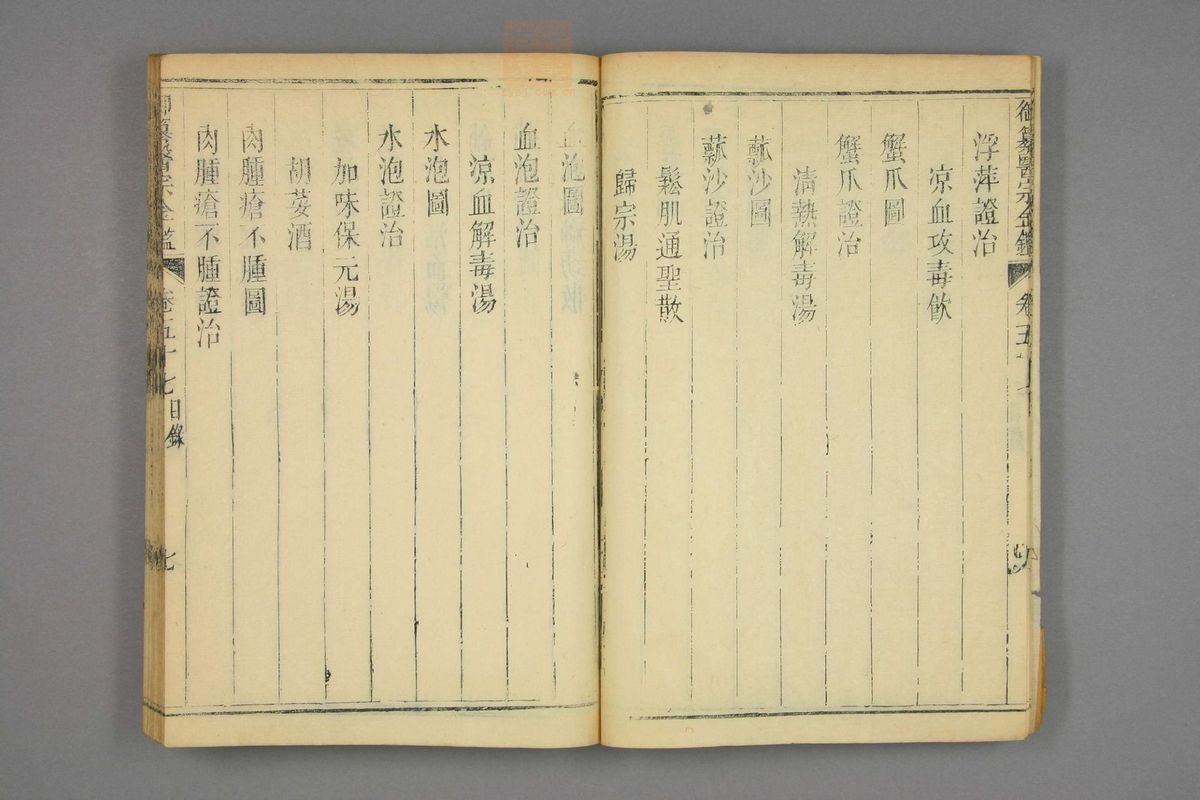 御纂醫宗金鑑
卷五十
浮萍證治
涼血攻毒飲
蟹爪圖
蟹爪證治
清熱解毒湯
瓤沙圖
瓤沙證治
鬆肌通聖散
歸宗湯
血泡圖
血泡證治
涼血解毒湯
水泡圖
水泡證治
加味保元湯
胡荽酒
肉腫瘡不腫圖
肉腫瘡不腫證治
御纂醫宗金鑑
卷五十七目錄
七